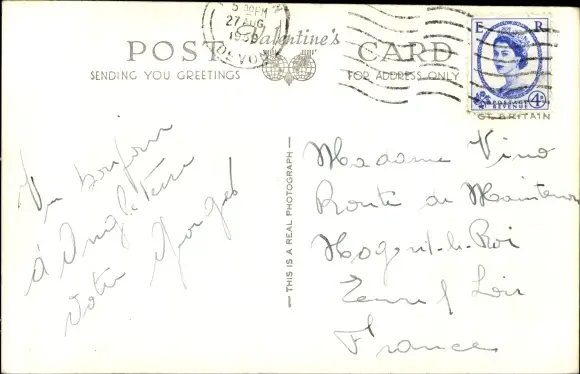 5 30PM
27 AUG
DEVON
Valentine's
POST CARD
SENDING YOU GREETINGS
FOR ADDRESS ONLY
E R
POSTAGE
REVENUE
4D
GT BRITAIN
THIS IS A REAL PHOTOGRAPH
Un bonjour
d'Angleterre
Votre Georges
Madame Vino
Route de Maintenon
Nogent-le-Roi
Eure & Loir
France